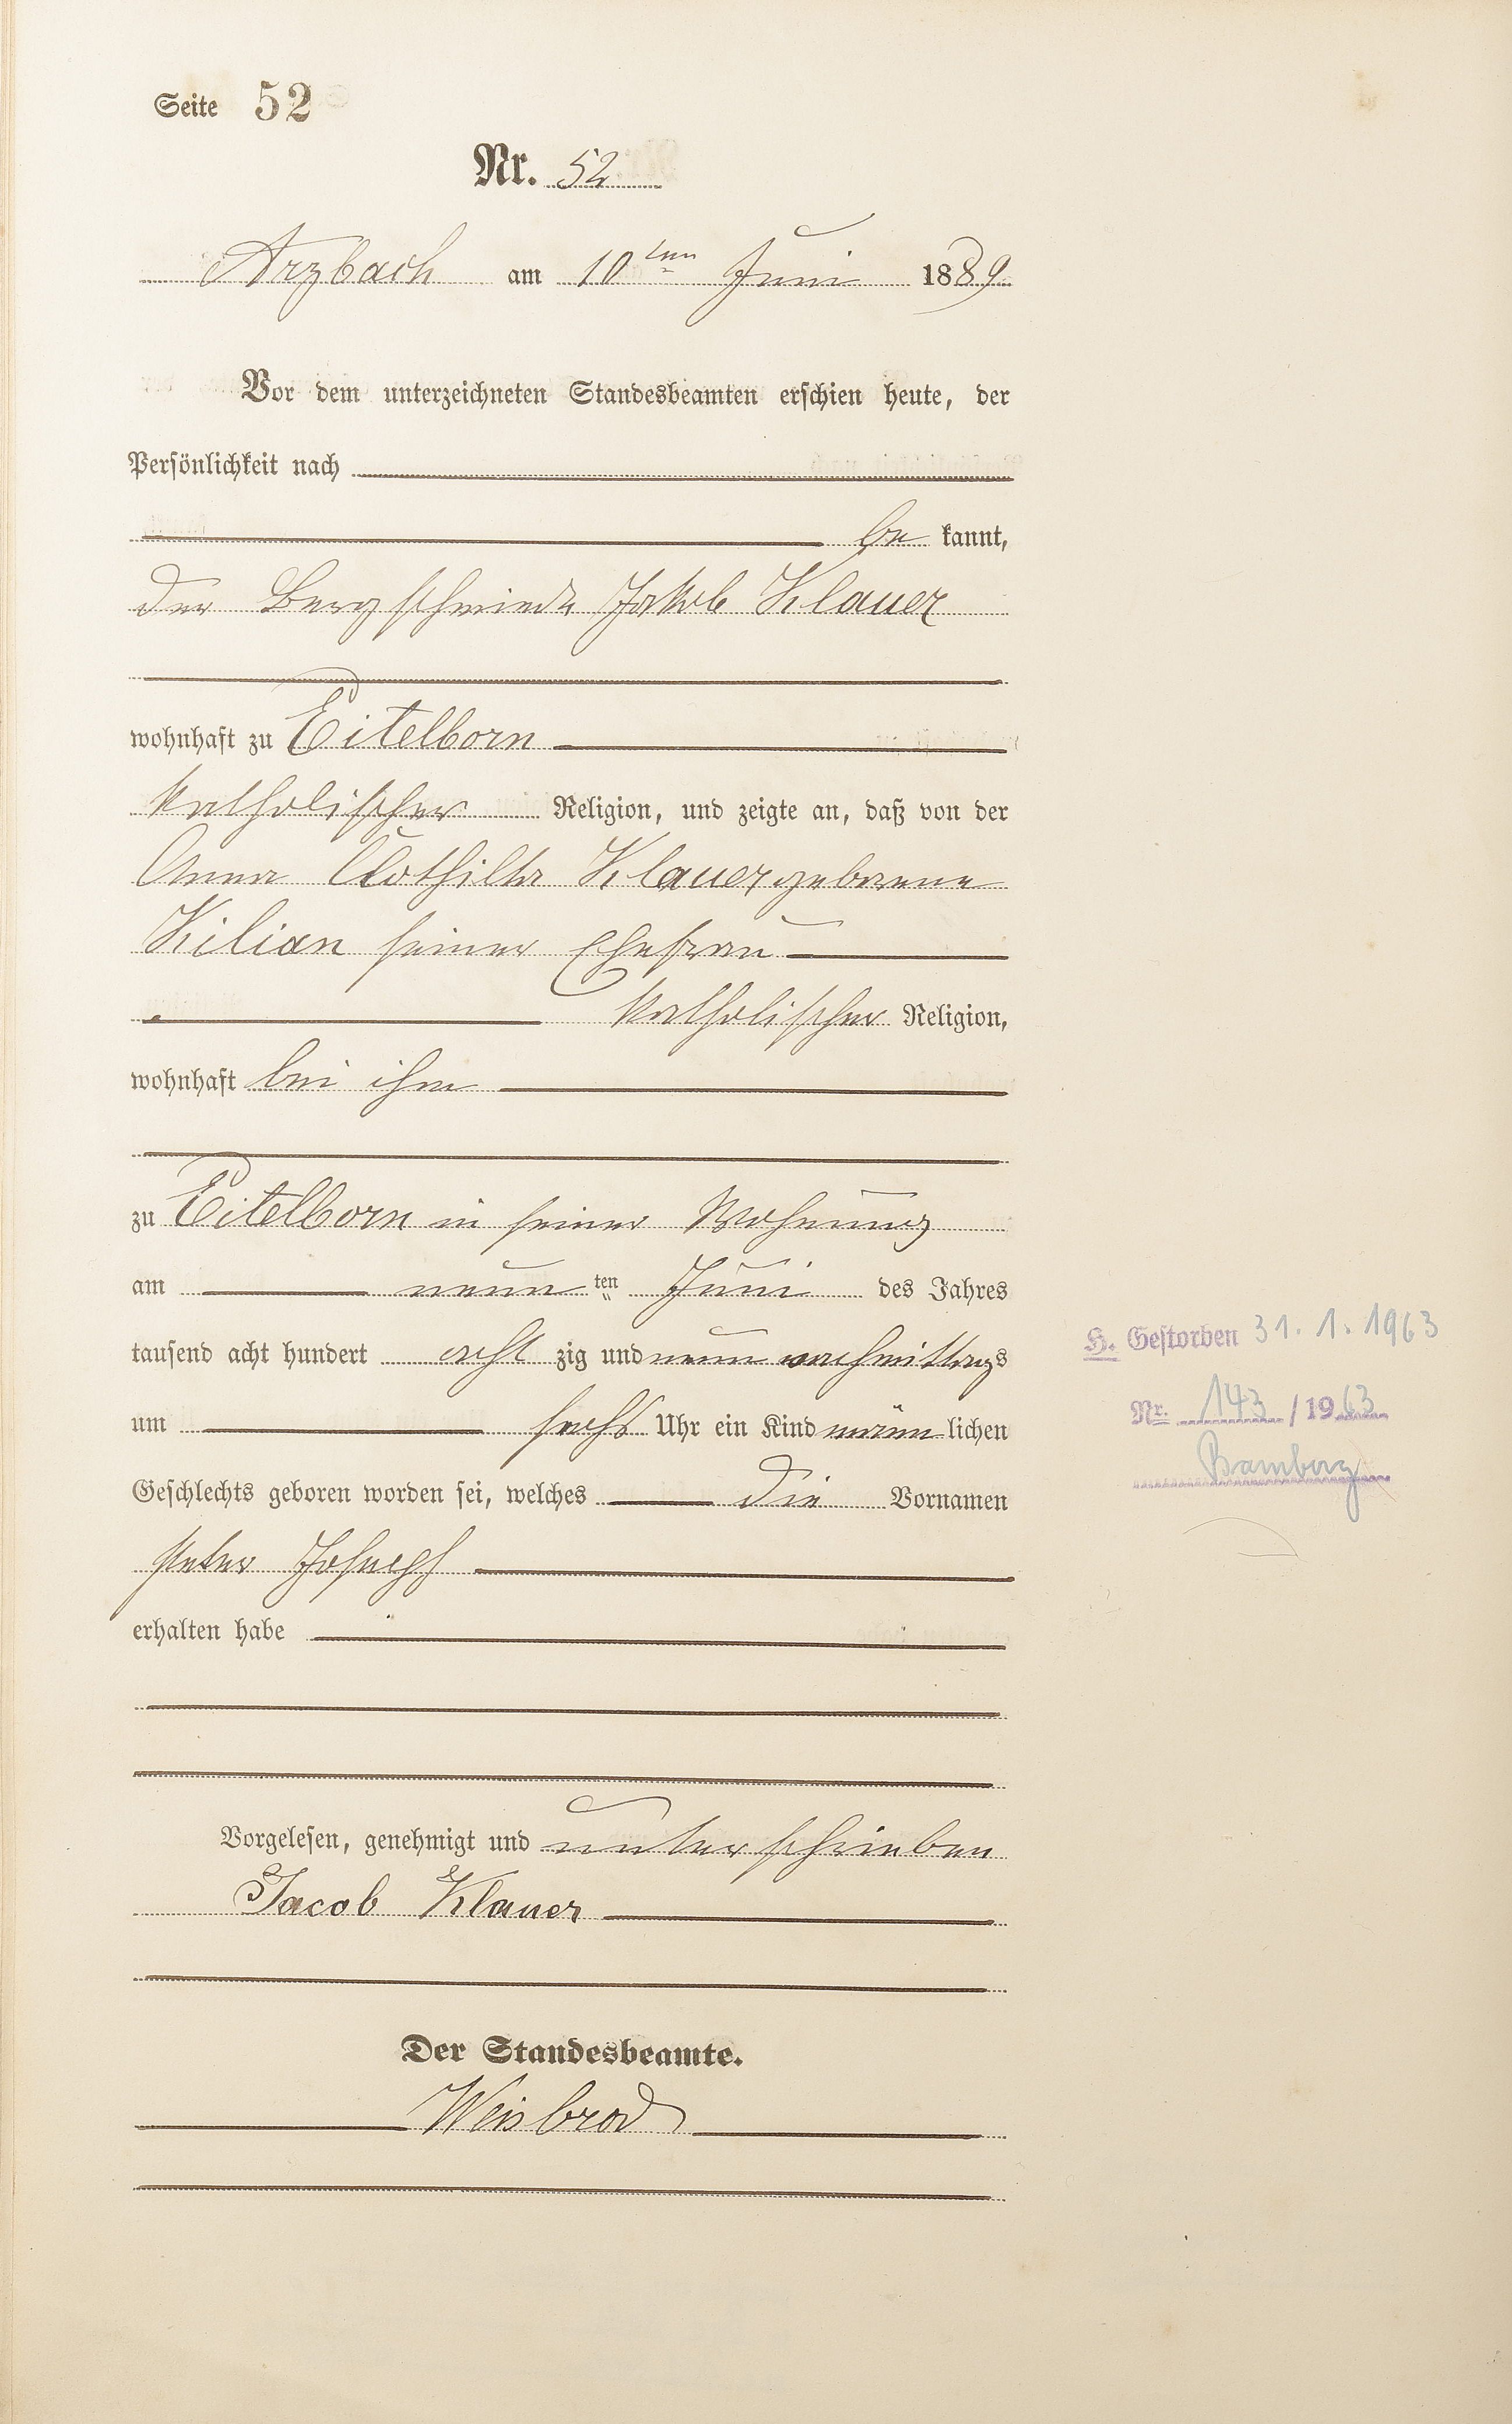 Seite 52
Nr. 52
Arzbach am 10ten Juni 1889
Vor dem unterzeichneten Standesbeamten erschien heute, der
Persönlichkeit nach
be kannt,
der Bergschmiede Jakob Klauer
wohnhaft zu Eitelborn
katholischer Religion, und zeigte an, daß von der
Anna Clothilde Klauer geborene
Kilian seiner Ehefrau
katholischer Religion,
wohnhaft bei ihm
zu Eitelborn in seiner Wohnung
am neun ten Juni des Jahres
tausend acht hundert acht zig und neun nachmittags
um sechs Uhr ein Kind männ-lichen
Geschlechts geboren worden sei, welches die Vornamen
Peter Joseph
erhalten habe
Vorgelesen, genehmigt und unterschrieben
Jacob Klauer
Der Standesbeamte.
Weisbrod
H. Gestorben 31.1.1963
Nr. 143/1963
Bamberg